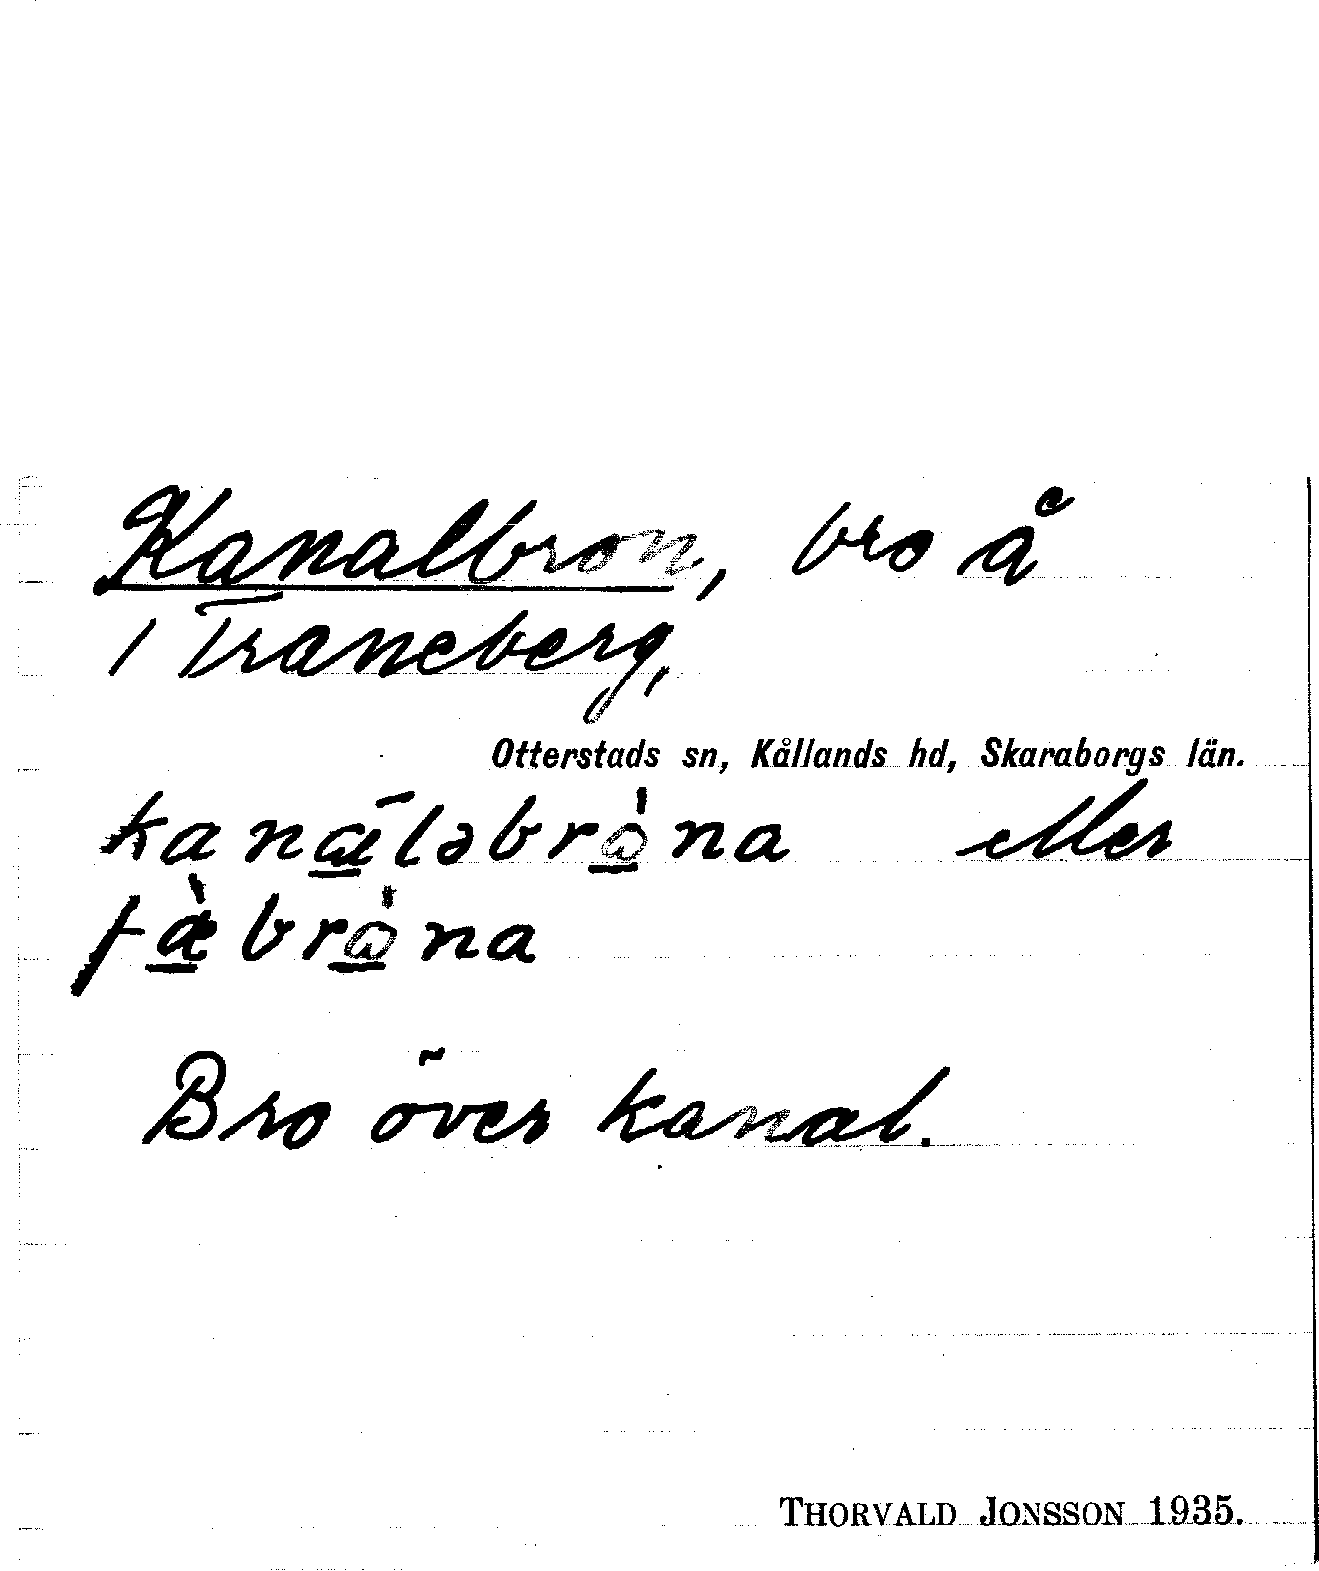 Kanalbron, bro å
/ Traneberg,
Otterstads sn, Kållands hd, Skaraborgs län.
eller
Bro över kanal.
THORVALD JONSSON 1935.